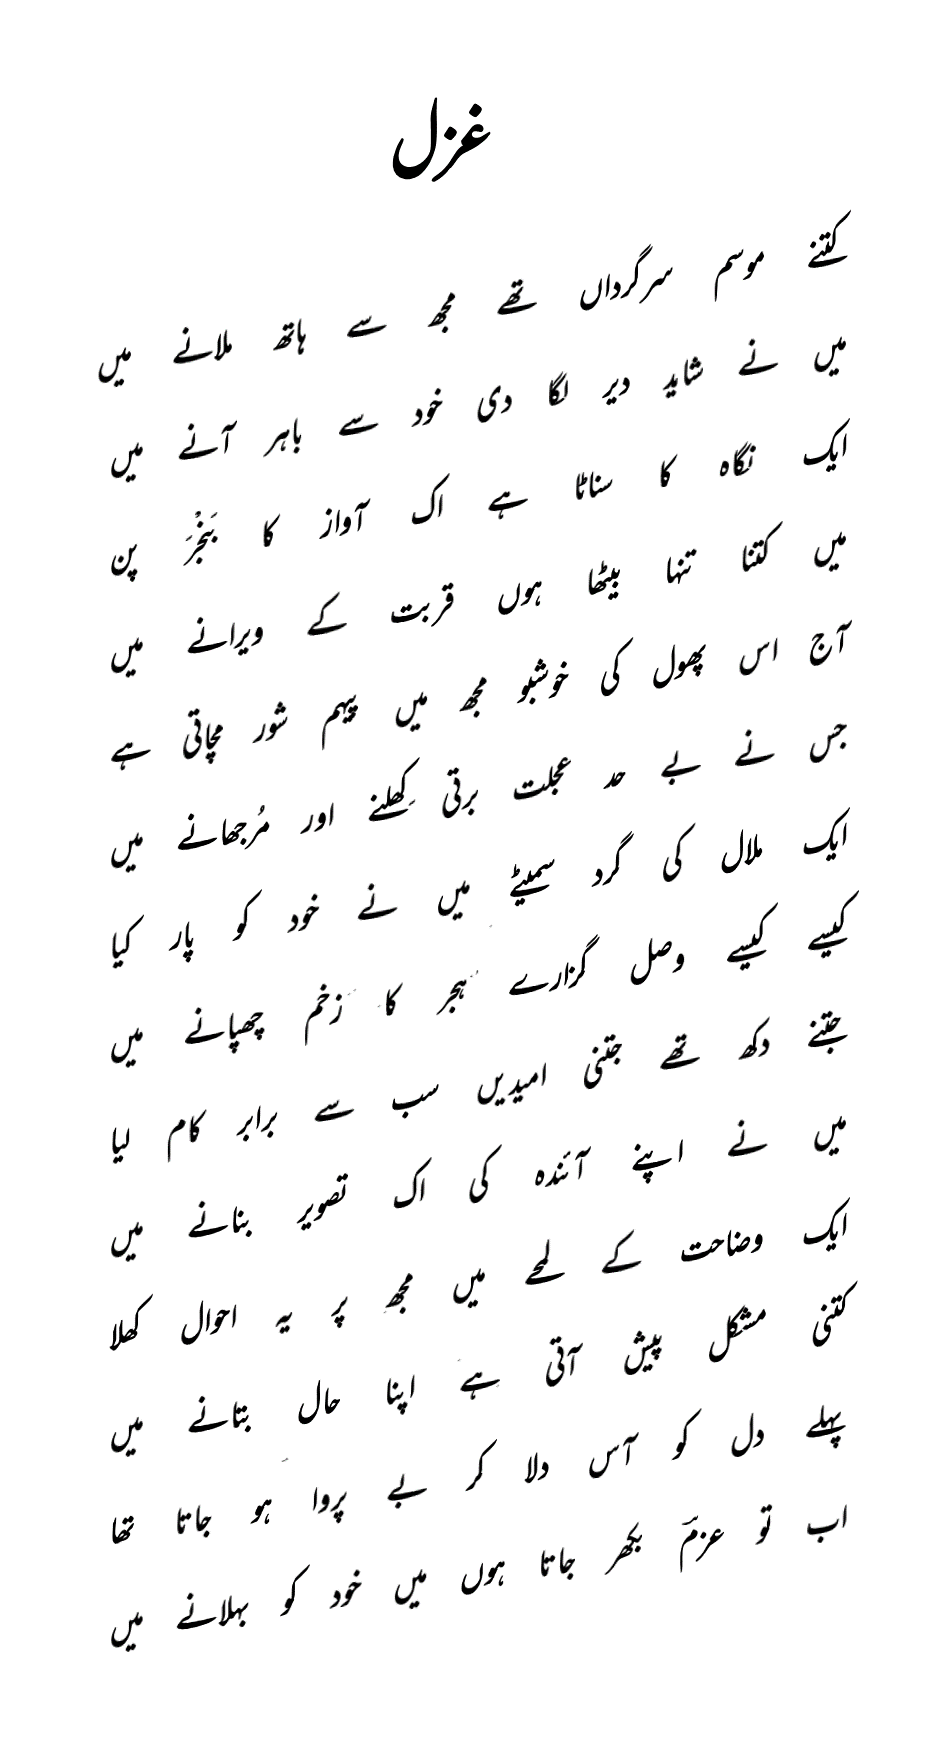 غزل
کتنے موسم سرگرداں تھے مجھ سے ہاتھ ملانے میں
میں نے شاید دیر لگا دی خود سے باہر آنے میں
ایک نگاہ کا سناٹا ہے اک آواز کا بَنْجَر پن
میں کتنا تنہا بیٹھا ہوں قربت کے ویرانے میں
آج اس پھول کی خوشبو مجھ میں پیہم شور مچاتی ہے
جس نے بے حد عجلت برتی کِھلنے اور مُرجھانے میں
ایک ملال کی گرد سمیٹے میں نے خود کو پار کیا
کیسے کیسے وصل گزارے ہجر کا زخم چھپانے میں
جتنے دکھ تھے جتنی امیدیں سب سے برابر کام لیا
میں نے اپنے آئندہ کی اک تصویر بنانے میں
ایک وضاحت کے لمحے میں مجھ پر یہ احوال کھلا
کتنی مشکل پیش آتی ہے اپنا حال بتانے میں
پہلے دل کو آس دلا کر بے پروا ہو جاتا تھا
اب تو عزمؔ بکھر جاتا ہوں میں خود کو بہلانے میں